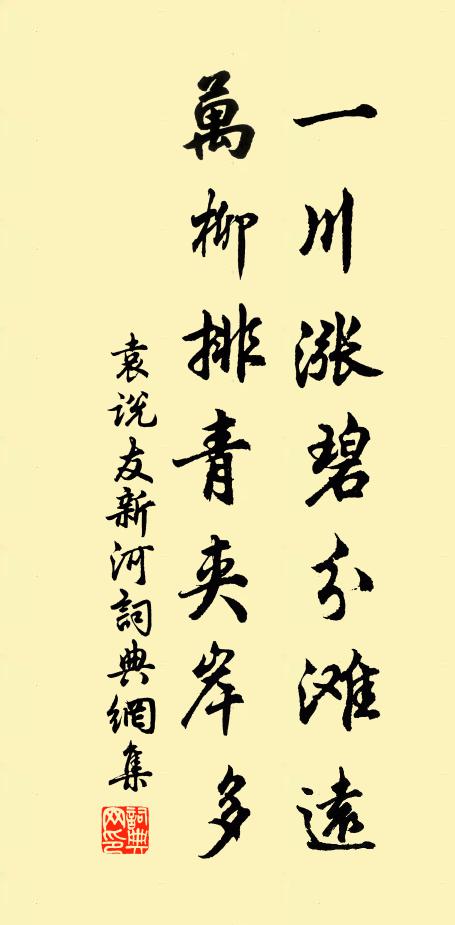 一川漲碧分滩遠
萬柳排青夾岸多
袁说友新河詞典網集
詞典網印